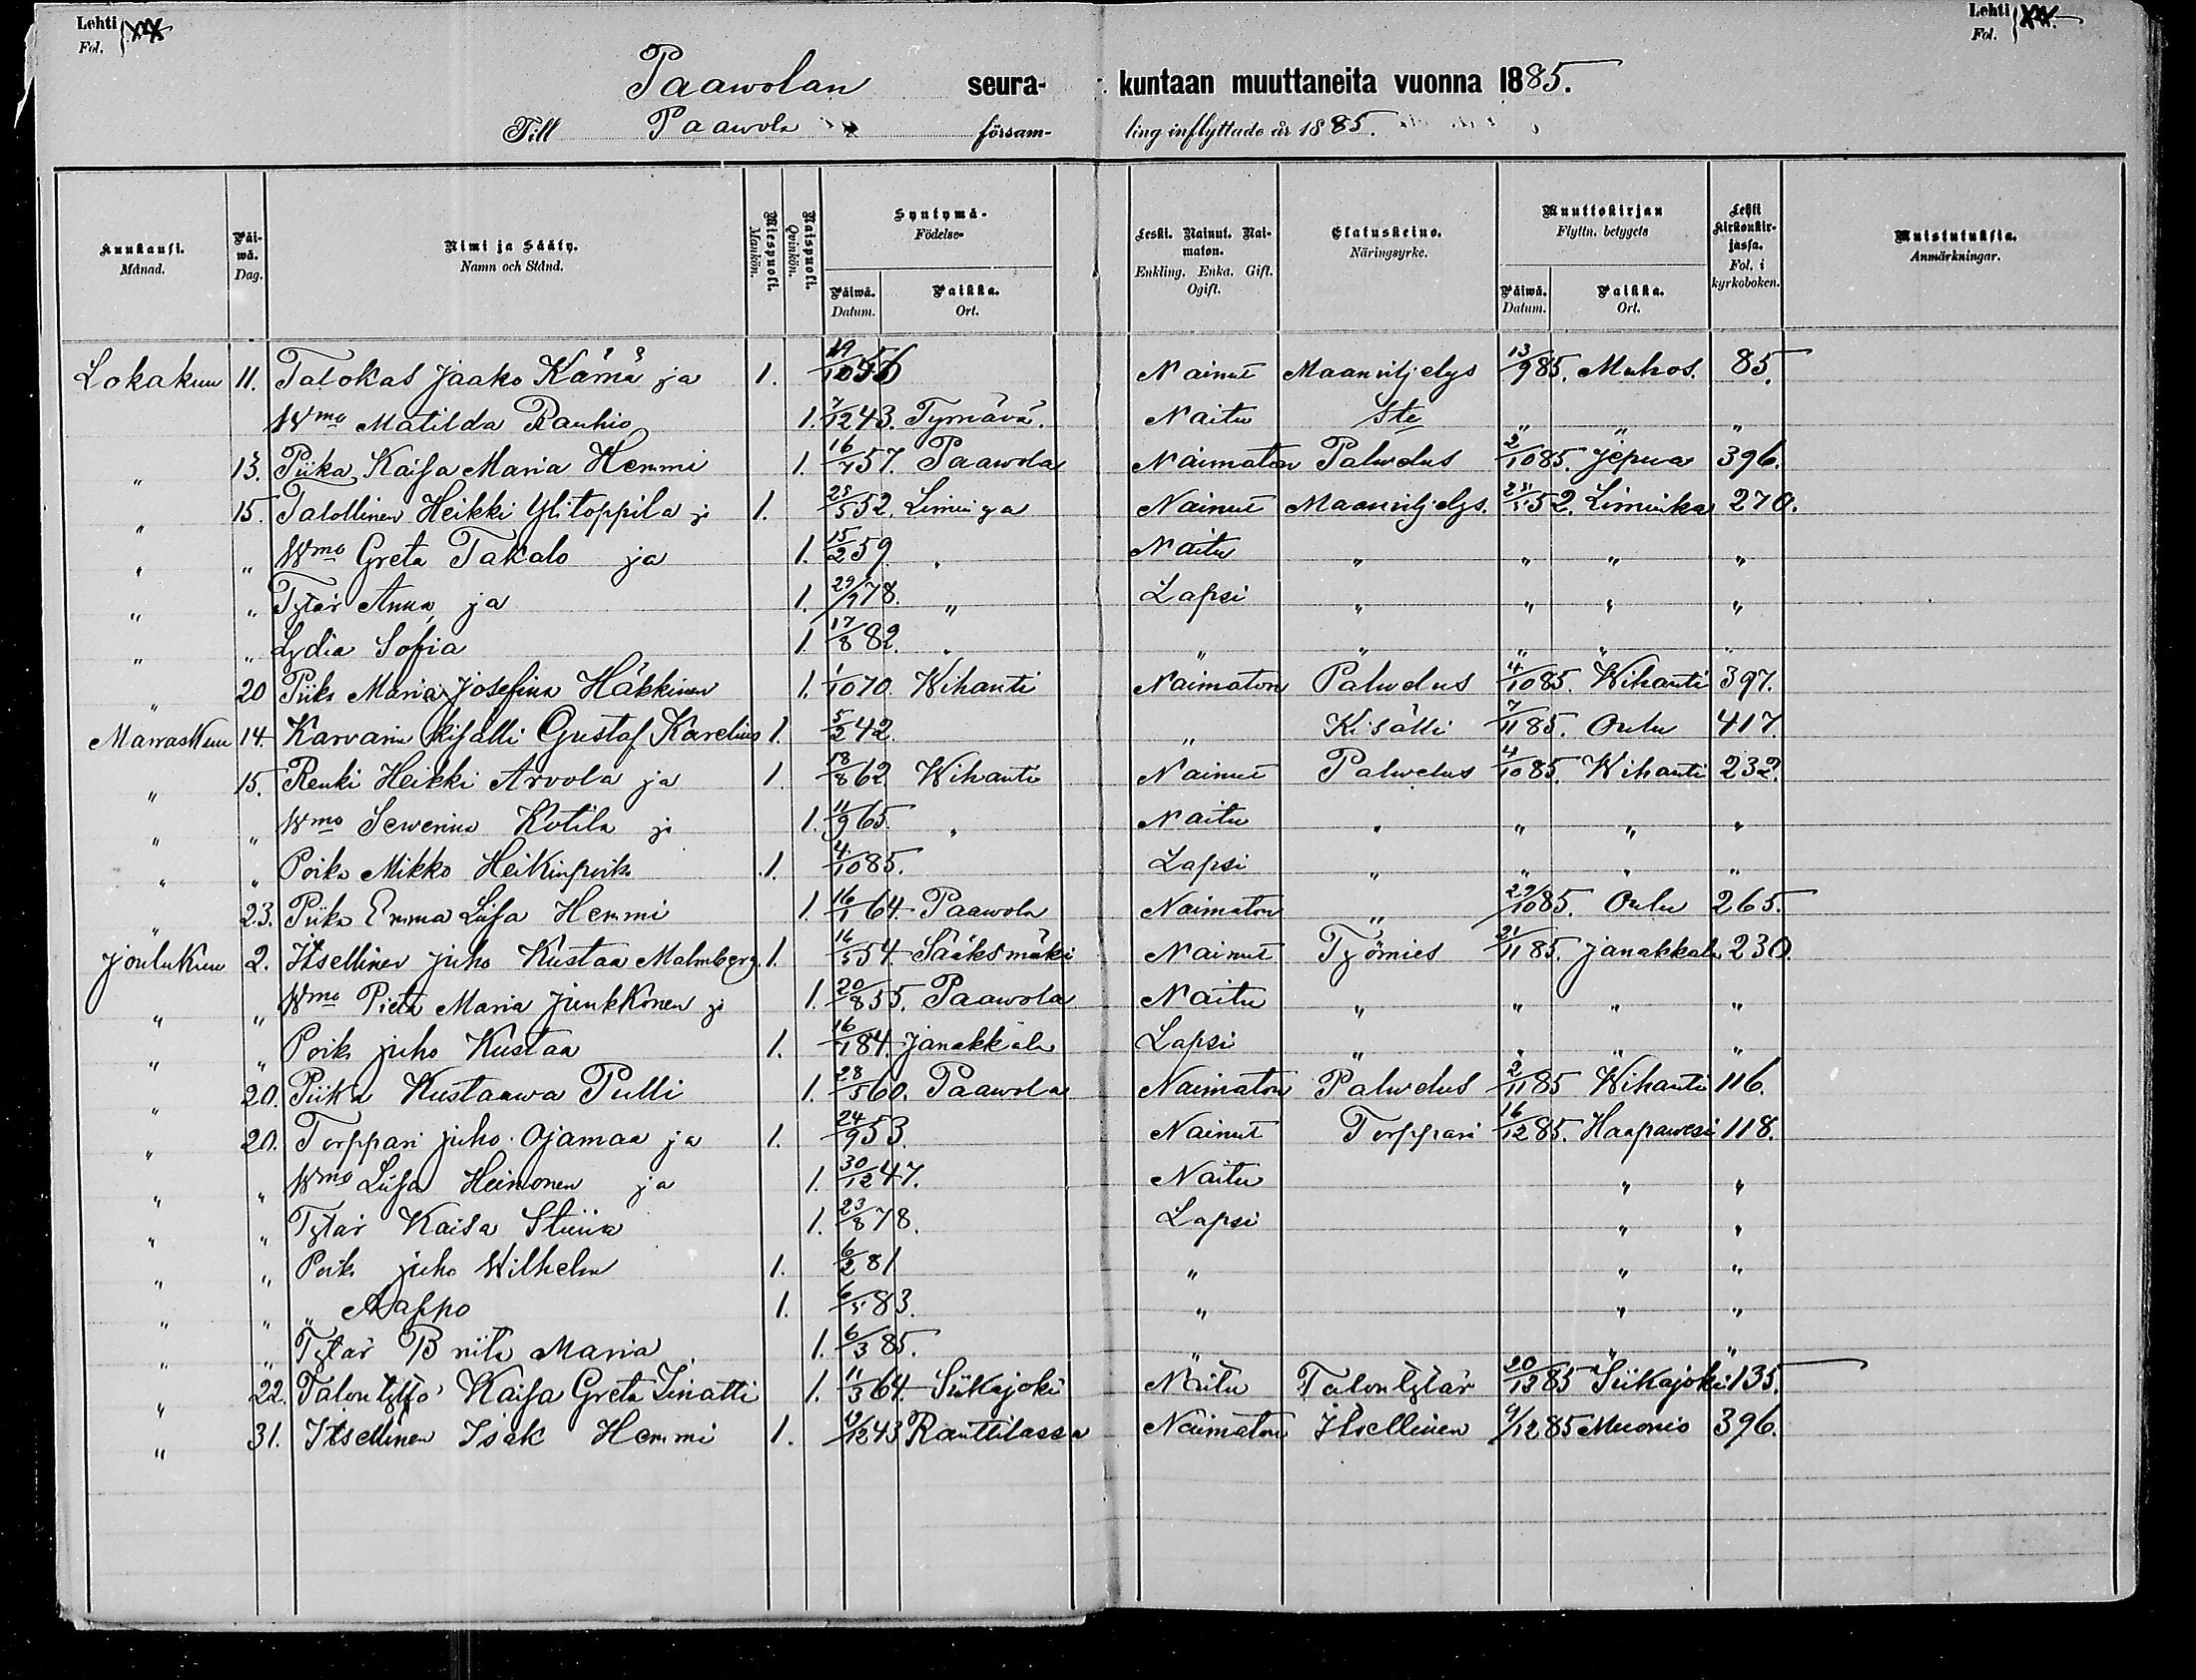 Lehti Fol. XX
Lehti Fol. XX.
Paawolan seura- kuntaan muuttaneita vuonna 1885.
Till Paawola försam- ling inflyttade år 1885.
Kuukausi. Månad. Päiwä. Dag. Nimi ja Sääty. Namn och Stånd. Miespuoli. Mankön. Naispuoli. Qvinkön. Syntymä- Födelse- Päiwä. Datum. Paikka. Ort. Leski. Nainut. Naimaton. Enkling. Enka. Gift. Ogift. Elatuskeino. Näringsyrke. Muuttokirjan Flyttn. betygets Päiwä. Datum. Paikka. Ort. Lehti kirkonkirjassa. Fol. i kyrkoboken. Muistutuksia. Anmärkningar.
Lokakuu 11. Talokas Jaako Kämä ja 1. Nainut Maanviljelys 13/9 85. Muhos. 85.
Wmo Matilda Rauhio 1. 7/12 43. Tyrnävä. Naitu " " "
" 13. Piika Kaisa Maria Hemmi 1. 16/7 57. Paawola Naimaton Palwelus 2/10 85. Jepua 396.
" 15. Talollinen Heikki Ylitoppila ja 1. 25/5 52. Liminga Nainut Maanviljelys. 52. Liminka 270.
" " Wmo Greta Takalo ja 1. 15/2 59. " Naitu " " " "
" " Tytär Anna ja 1. 29/9 78. " Lapsi " " " "
" " Lydia Sofia 1. 17/8 82. " " " " " "
" 20 Piika Maria Josefina Häkkinen 1. 1/10 70. Wihanti Naimaton Palwelus 4/10 85. Wihanti 397.
Marraskuu 14. Karvarin kisälli Gustaf Karelius 1. 5/2 42. " Kisälli 7/11 85. Oulu 417.
" 15. Renki Heikki Arvola ja 1. 18/8 62. Wihanti Nainut Palwelus 4/10 85. Wihanti 232.
" " Wmo Sewerina Kotila ja 1. 11/9 65. " Naitu " " " "
" " Poika Mikko Heikinpoika 1. 4/10 85. Lapsi " " " "
" 23. Piika Emma Liisa Hemmi 1. 16/1 64. Paawola Naimaton " 29/10 85. Oulu 265.
Joulukuu 2. Itsellinen Juho Kustaa Malmberg. 1. 16/5 54. Sääksmäki Nainut Työmies 21/11 85. Janakkala 230
" " Wmo Pieta Maria Junkkonen ja 1. 20/8 55. Paawola Naitu " " " "
" " Poika Juho Kustaa 1. 16/1 84. Janakkala Lapsi " " " "
" 20. Piika Kustaawa Pulli 1. 28/5 60. Paawola Naimaton Palwelus 2/11 85 Wihanti 116.
" 20. Torppari Juho Ojamaa ja 1. 24/9 53. Nainut Torppari 16/12 85. Haapawesi 118.
" " Wmo Liisa Heinonen ja 1. 30/12 47. Naitu " "
" " Tytär Kaisa Stiina 1. 23/8 78. Lapsi " "
" " Poika Juho Wilhelm 1. 6/2 81 " " "
" " " Aappo 1. 6/5 83. " " "
" " Tytär Briita Maria 1. 6/3 85. " " "
" 22. Talontyttö Kaisa Greta Iinatti 1. 11/3 64. Siikajoki Naitu Talontytär 20/12 85 Siikajoki 135.
" 31. Itsellinen Isak Hemmi 1. 43 Ranttilassa Naimaton Itsellinen 9/12 85 Muonio 396.